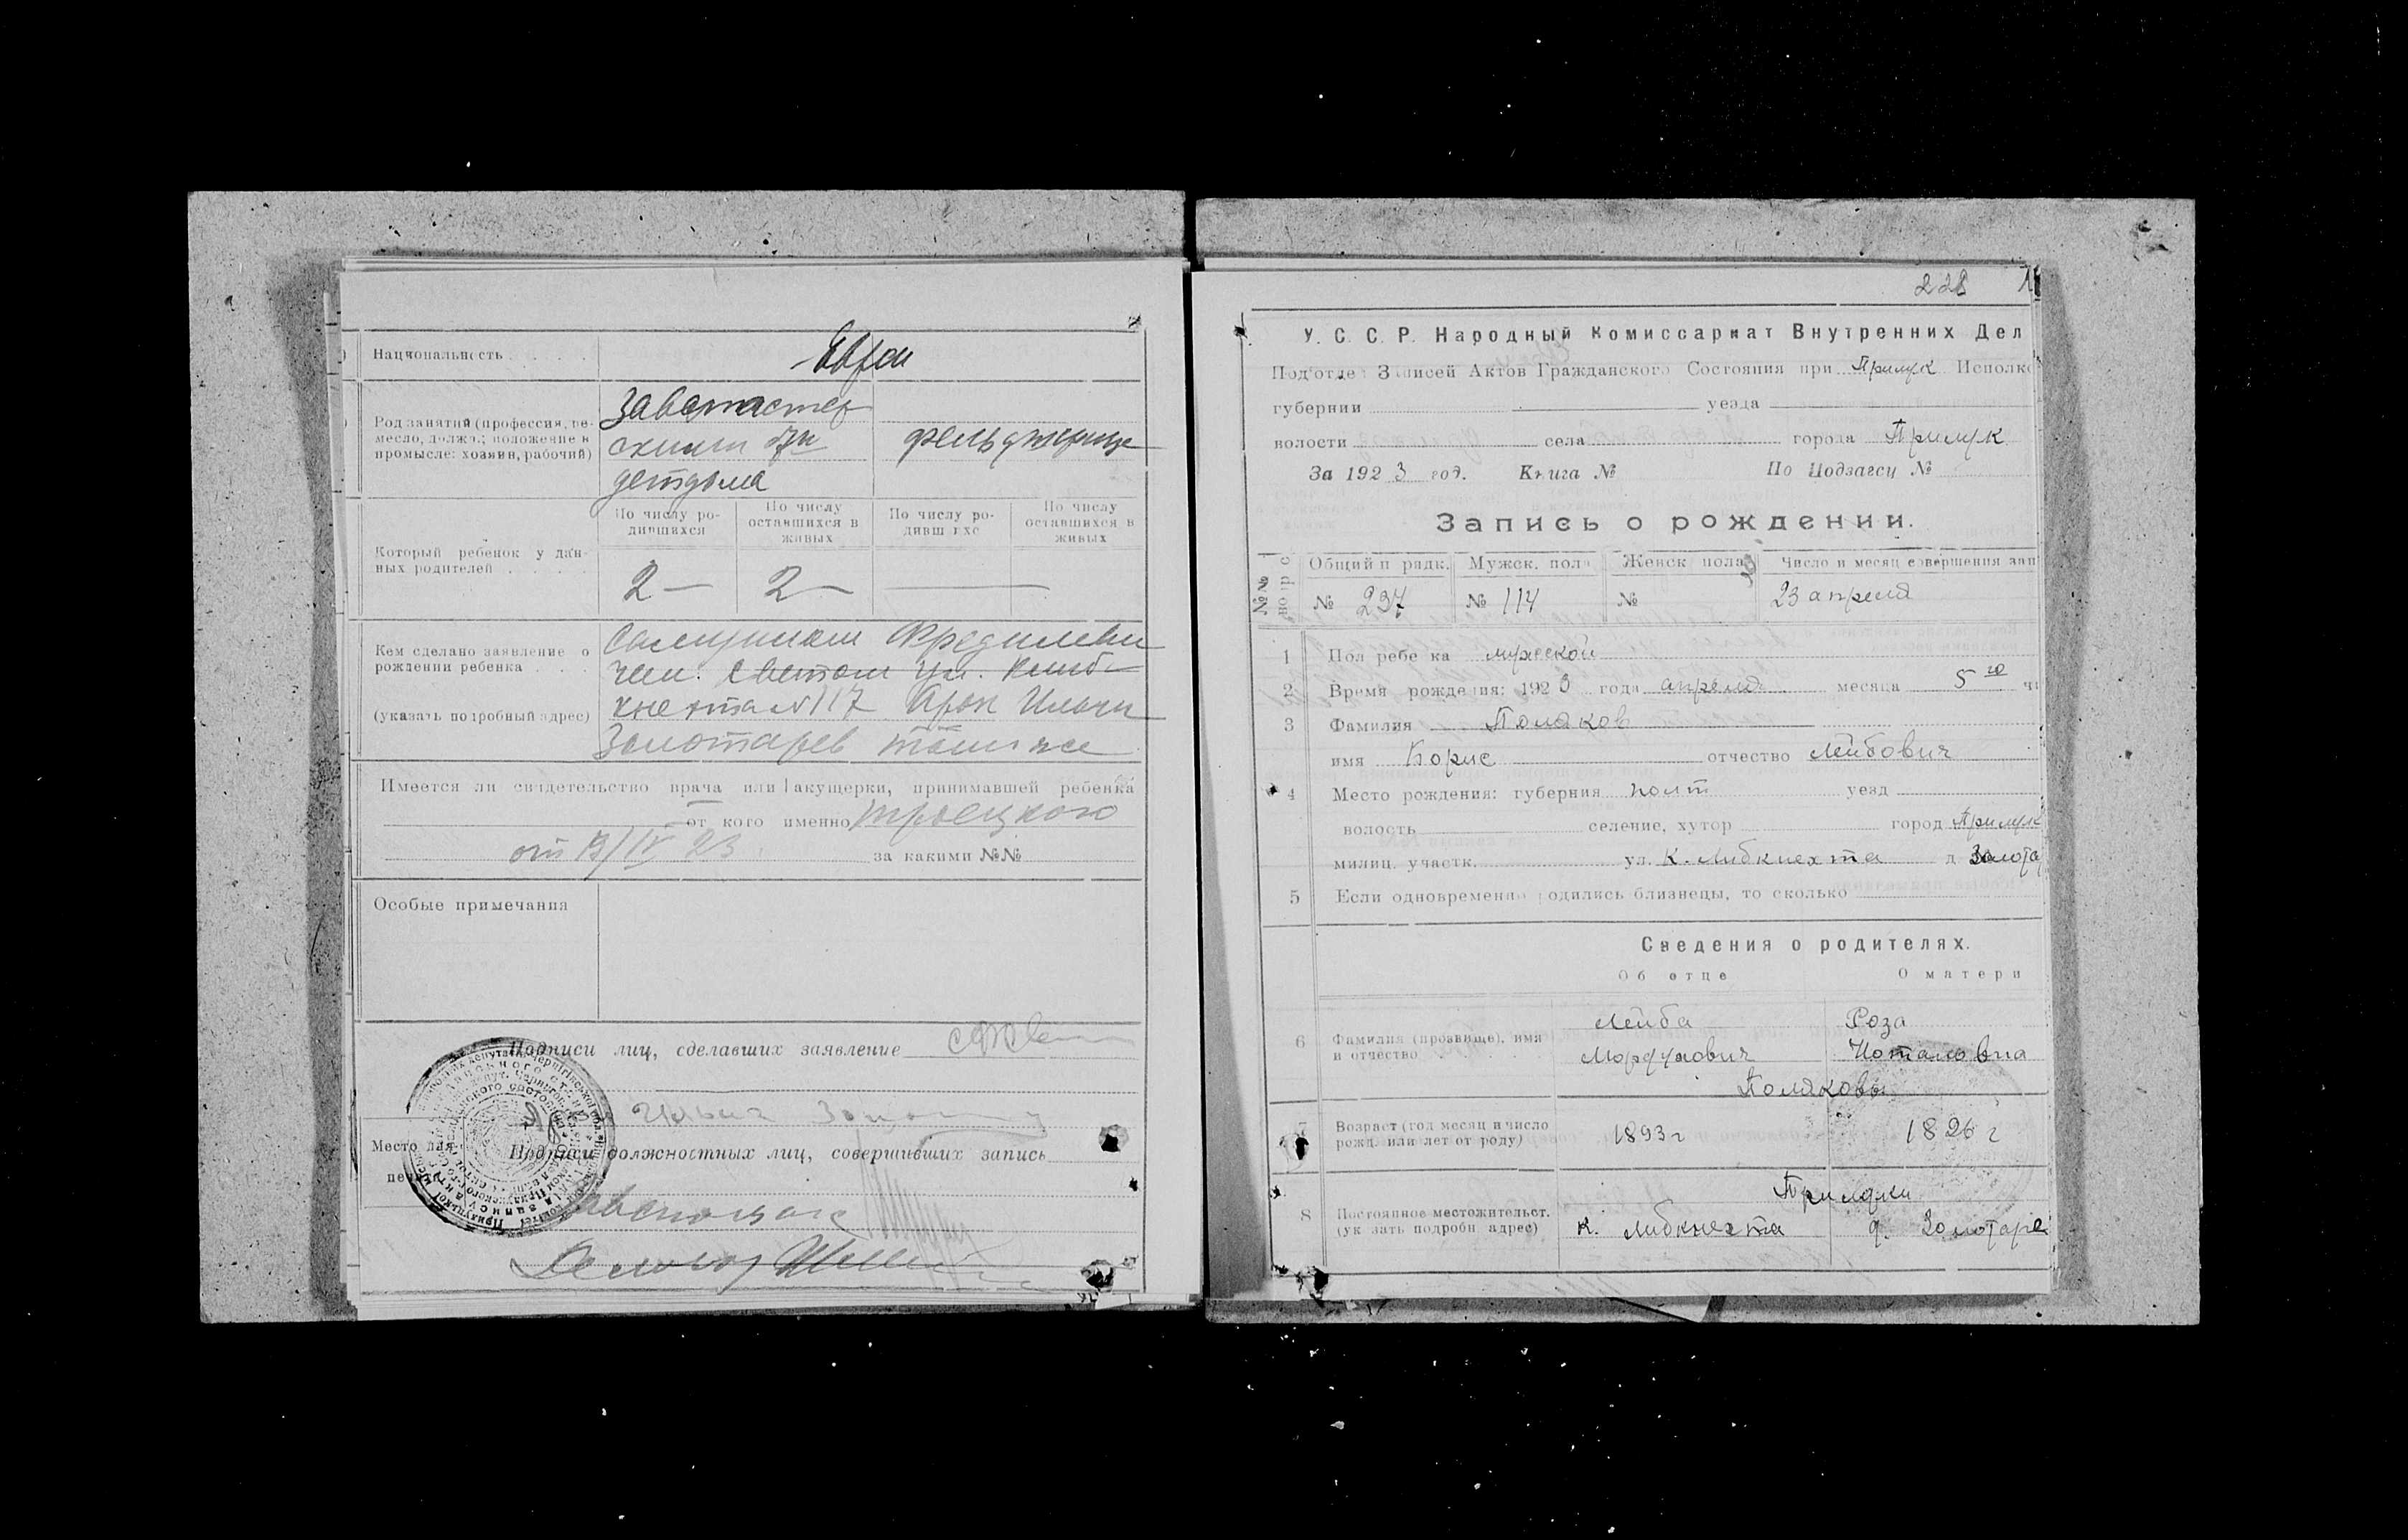 Национальность
Евреи
Род занятий (профессия, ре-
месло, должн.; положение в
промысле: хозяин, рабочий)
Завмастер
7й
детдома
фельдшерица
Который ребенок у дан-
ных родителей
По числу ро-
дившихся
По числу
оставшихся в
живых
По числу ро-
дивш хс
По числу
оставшихся в
живых
2 — 2 —
Кем сделано заявление о
рождении ребенка
(указать подробный адрес)
чем. Светом ул. Либ-
кнехта № 117 Арон Ильич
Золотарев там же
Имеется ли свидетельство врача или акушерки, принимавшей ребенка
от кого именно Троецкого
от /IV 23 за какими №№
Особые примечания
Подписи лиц, сделавших заявление
Место для
печати
Подписи должностных лиц, совершивших запись
228
У. С. С. Р. Народный Комиссариат Внутренних Дел
Подотдел Записей Актов Гражданского Состояния при Прилук Исполко
губернии уезда
волости села города Прилук
За 1923 год. Книга № По Подзагсу №
Запись о рождении.
Общий п рядк. Мужск. пола Женск пола Число и месяц совершения зап
№ 237 № 114 № 23 апреля
1 Пол ребе ка мужской
2 Время рождения: 1923 года апреля месяца 5го чи
3 Фамилия Поляков
имя Борис отчество Лейбович
4 Место рождения: губерния Полт уезд
волость селение, хутор город Прилук
милиц. участк. ул. К. Либкнехта д. Золота
5 Если одновременно родились близнецы, то сколько
Сведения о родителях.
Об отце О матери
6 Фамилия (прозвище), имя
и отчество
Лейба
Мордухович
Роза
Поляковы
7 Возраст (год месяц и число
рожд. или лет от роду)
1893 г
1896 г
8 Постоянное местожительст.
(ук зать подробн адрес)
Прилуки
К. Либкнехта д. Золотаре